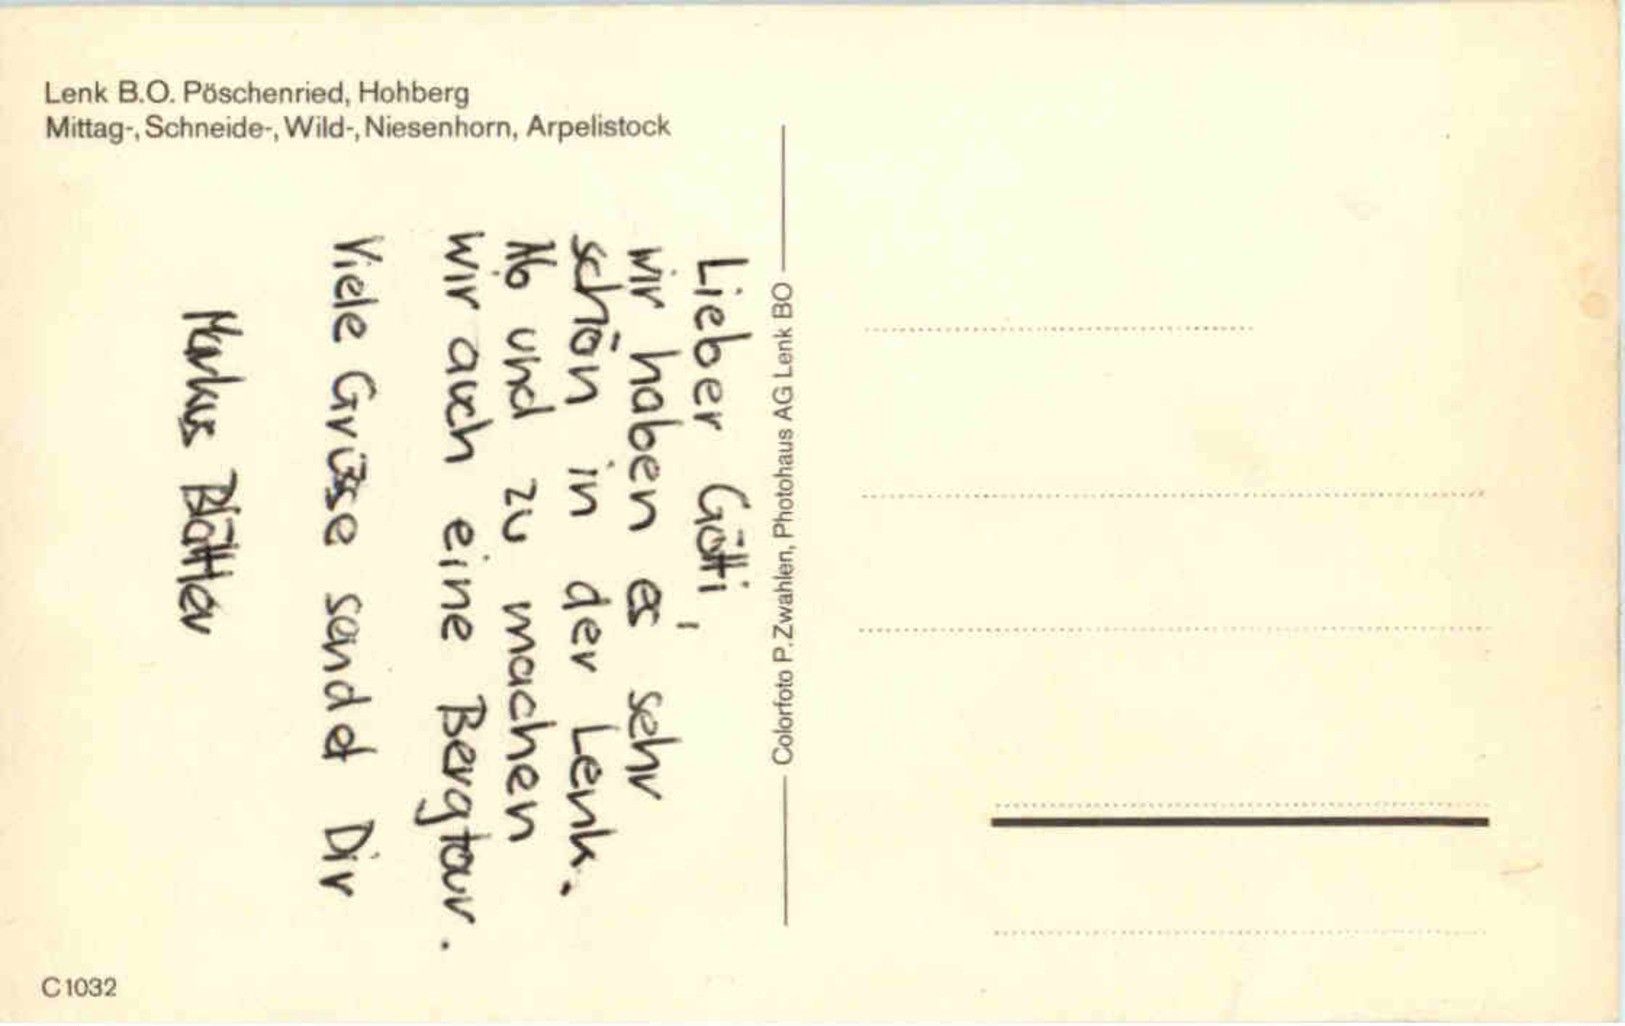 Lenk B.O. Pöschenried, Hohberg
Mittag-, Schneide-, Wild-, Niesenhorn, Arpelistock
Lieber Götti,
wir haben es sehr
schön in der Lenk.
Ab und zu machen
wir auch eine Bergtour.
Viele Grüsse sendet Dir
Markus Blättler
Colorfoto P. Zwahlen, Photohaus AG Lenk BO
C1032